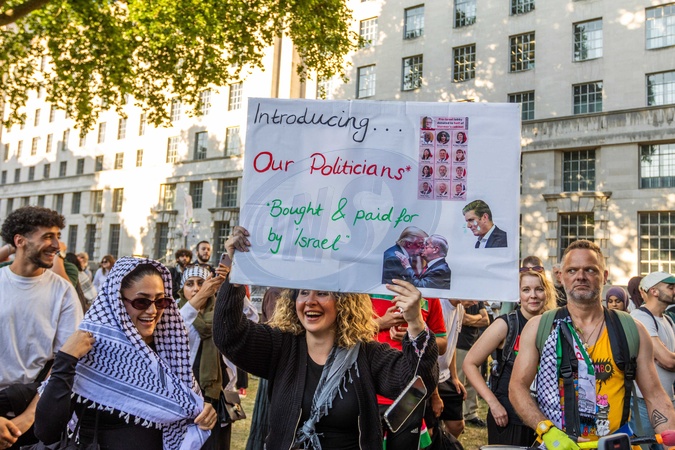 Introducing...
Our Politicians*
*Bought & paid for
by 'Israel"